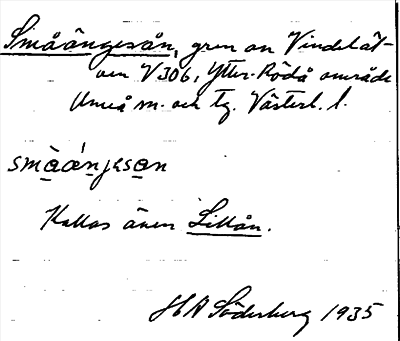 Småängesån, gren av Vindelät-
ven V306, Ytter-Rödå område
Umeå m. och tg. Västerb. l.
småáŋjesan
Kallas även Lillån.
H A Söderberg 1935